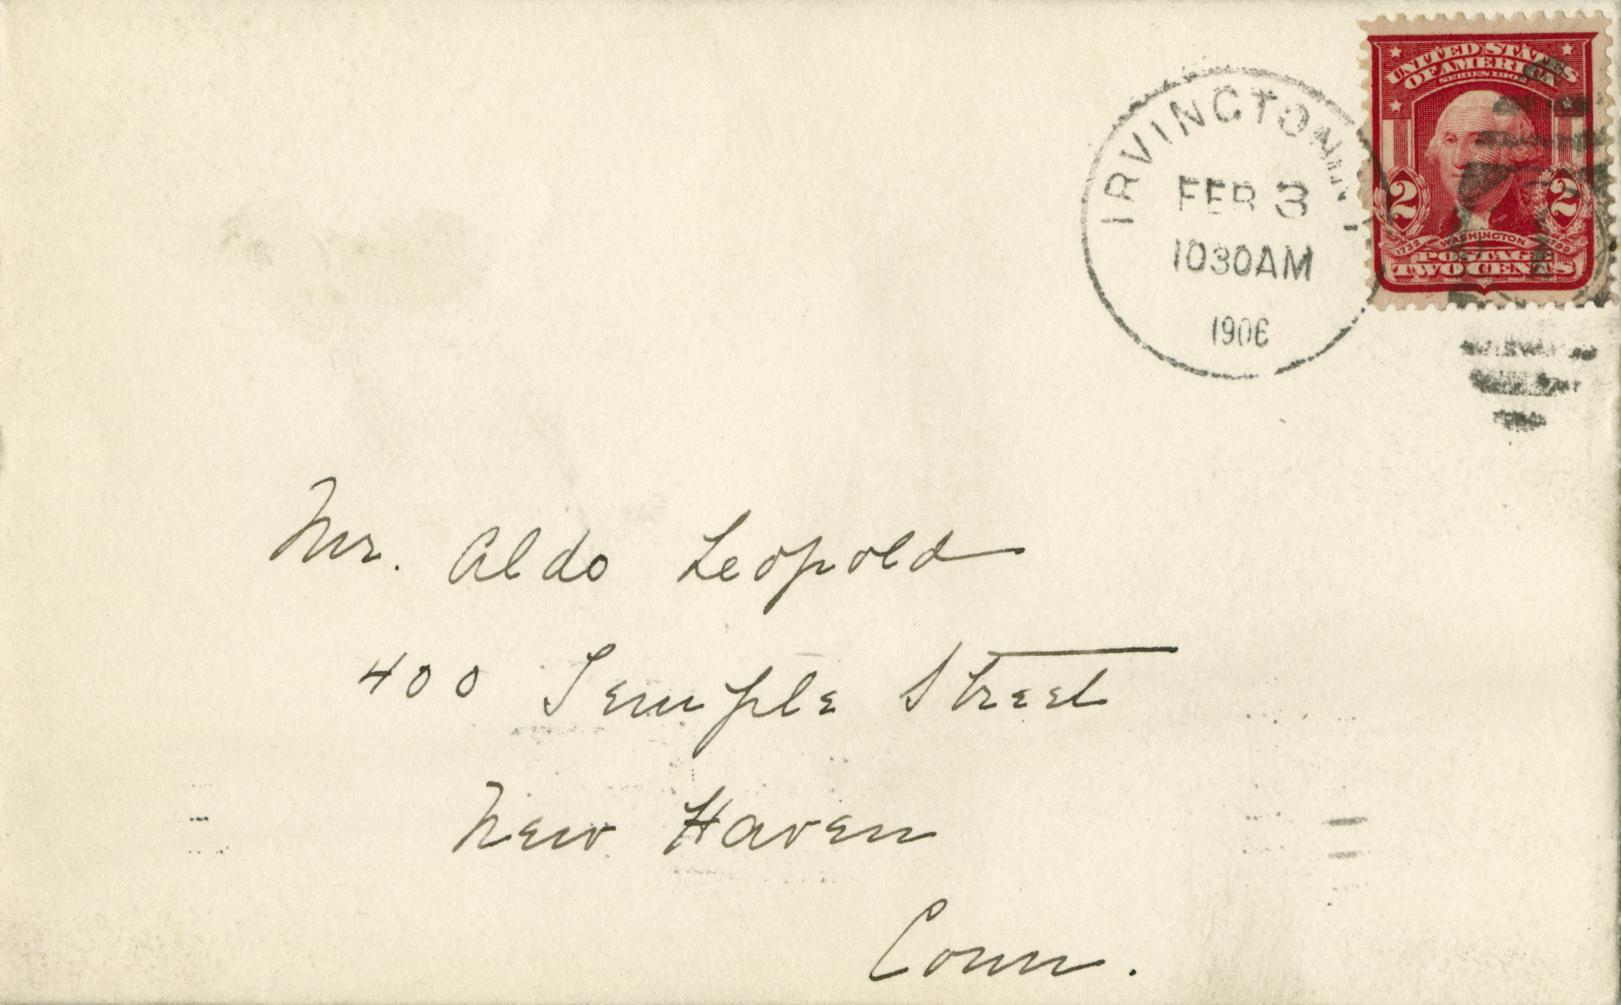 IRVINGTON N.Y.
FEB 3
1030AM
1906
UNITED STATES
OF AMERICA
SERIES 1902
2 2
1732 WASHINGTON 1799
POSTAGE
TWO CENTS
Mr. Aldo Leopold
400 Temple Street
New Haven
Conn.